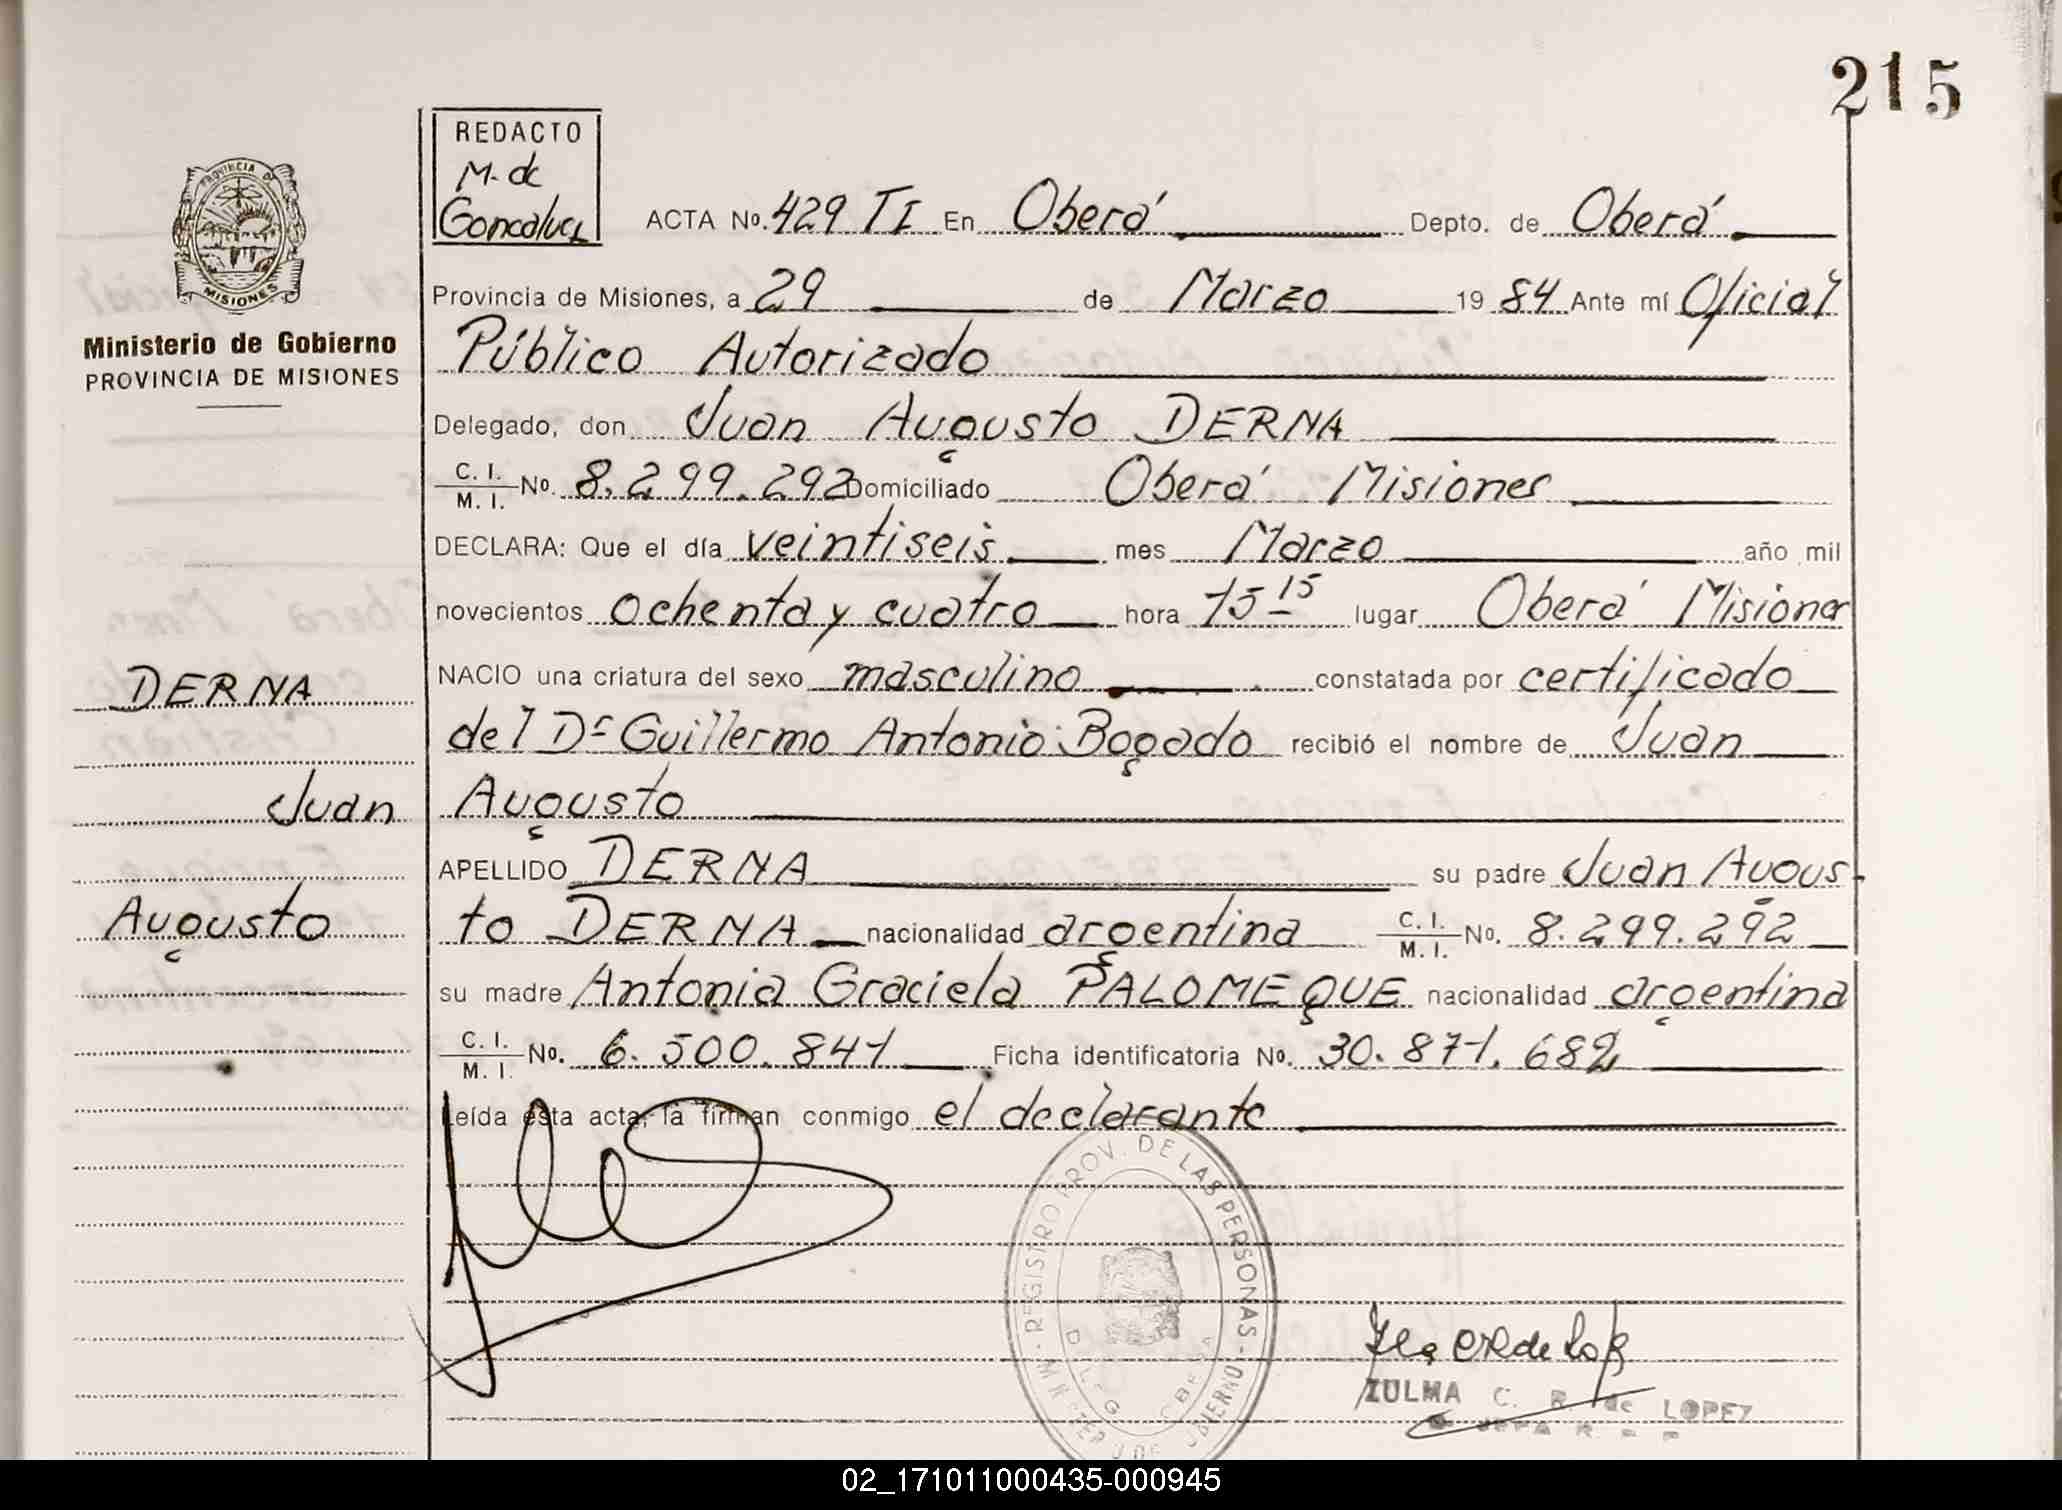 215
REDACTO
M. de
Goncalvez
PROVINCIA DE
MISIONES
Ministerio de Gobierno
PROVINCIA DE MISIONES
ACTA No. 429 TI En Oberá Depto. de Oberá
Provincia de Misiones, a 29 de Marzo 19 84 Ante mí Oficial
Público Autorizado
Delegado, don Juan Augusto DERNA
C. I. / M. I. No. 8.299.292 Domiciliado Oberá Misiones
DECLARA: Que el día veintiseis mes Marzo año mil
novecientos ochenta y cuatro hora 15 15 lugar Oberá Misiones
DERNA
NACIO una criatura del sexo masculino constatada por certificado
del Dr Guillermo Antonio Bogado recibió el nombre de Juan
Juan
Augusto
APELLIDO DERNA su padre Juan Augus-
Augusto
to DERNA nacionalidad argentina C. I. / M. I. No. 8.299.292
su madre Antonia Graciela PALOMEQUE nacionalidad argentina
C. I. / M. I. No. 6.500.841 Ficha identificatoria No. 30.871.682
Leída esta acta, la firman conmigo el declarante
REGISTRO PROV. DE LAS PERSONAS
ZULMA C. R. de LOPEZ
02_171011000435-000945